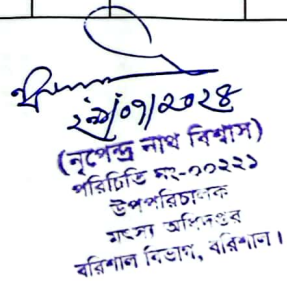 ২৯/০৭/২০২৪
(নৃপেন্দ্র নাথ বিশ্বাস)
পরিচিতি নং-০০২২১
উপপরিচালক
মৎস্য অধিদপ্তর
বরিশাল বিভাগ, বরিশাল।